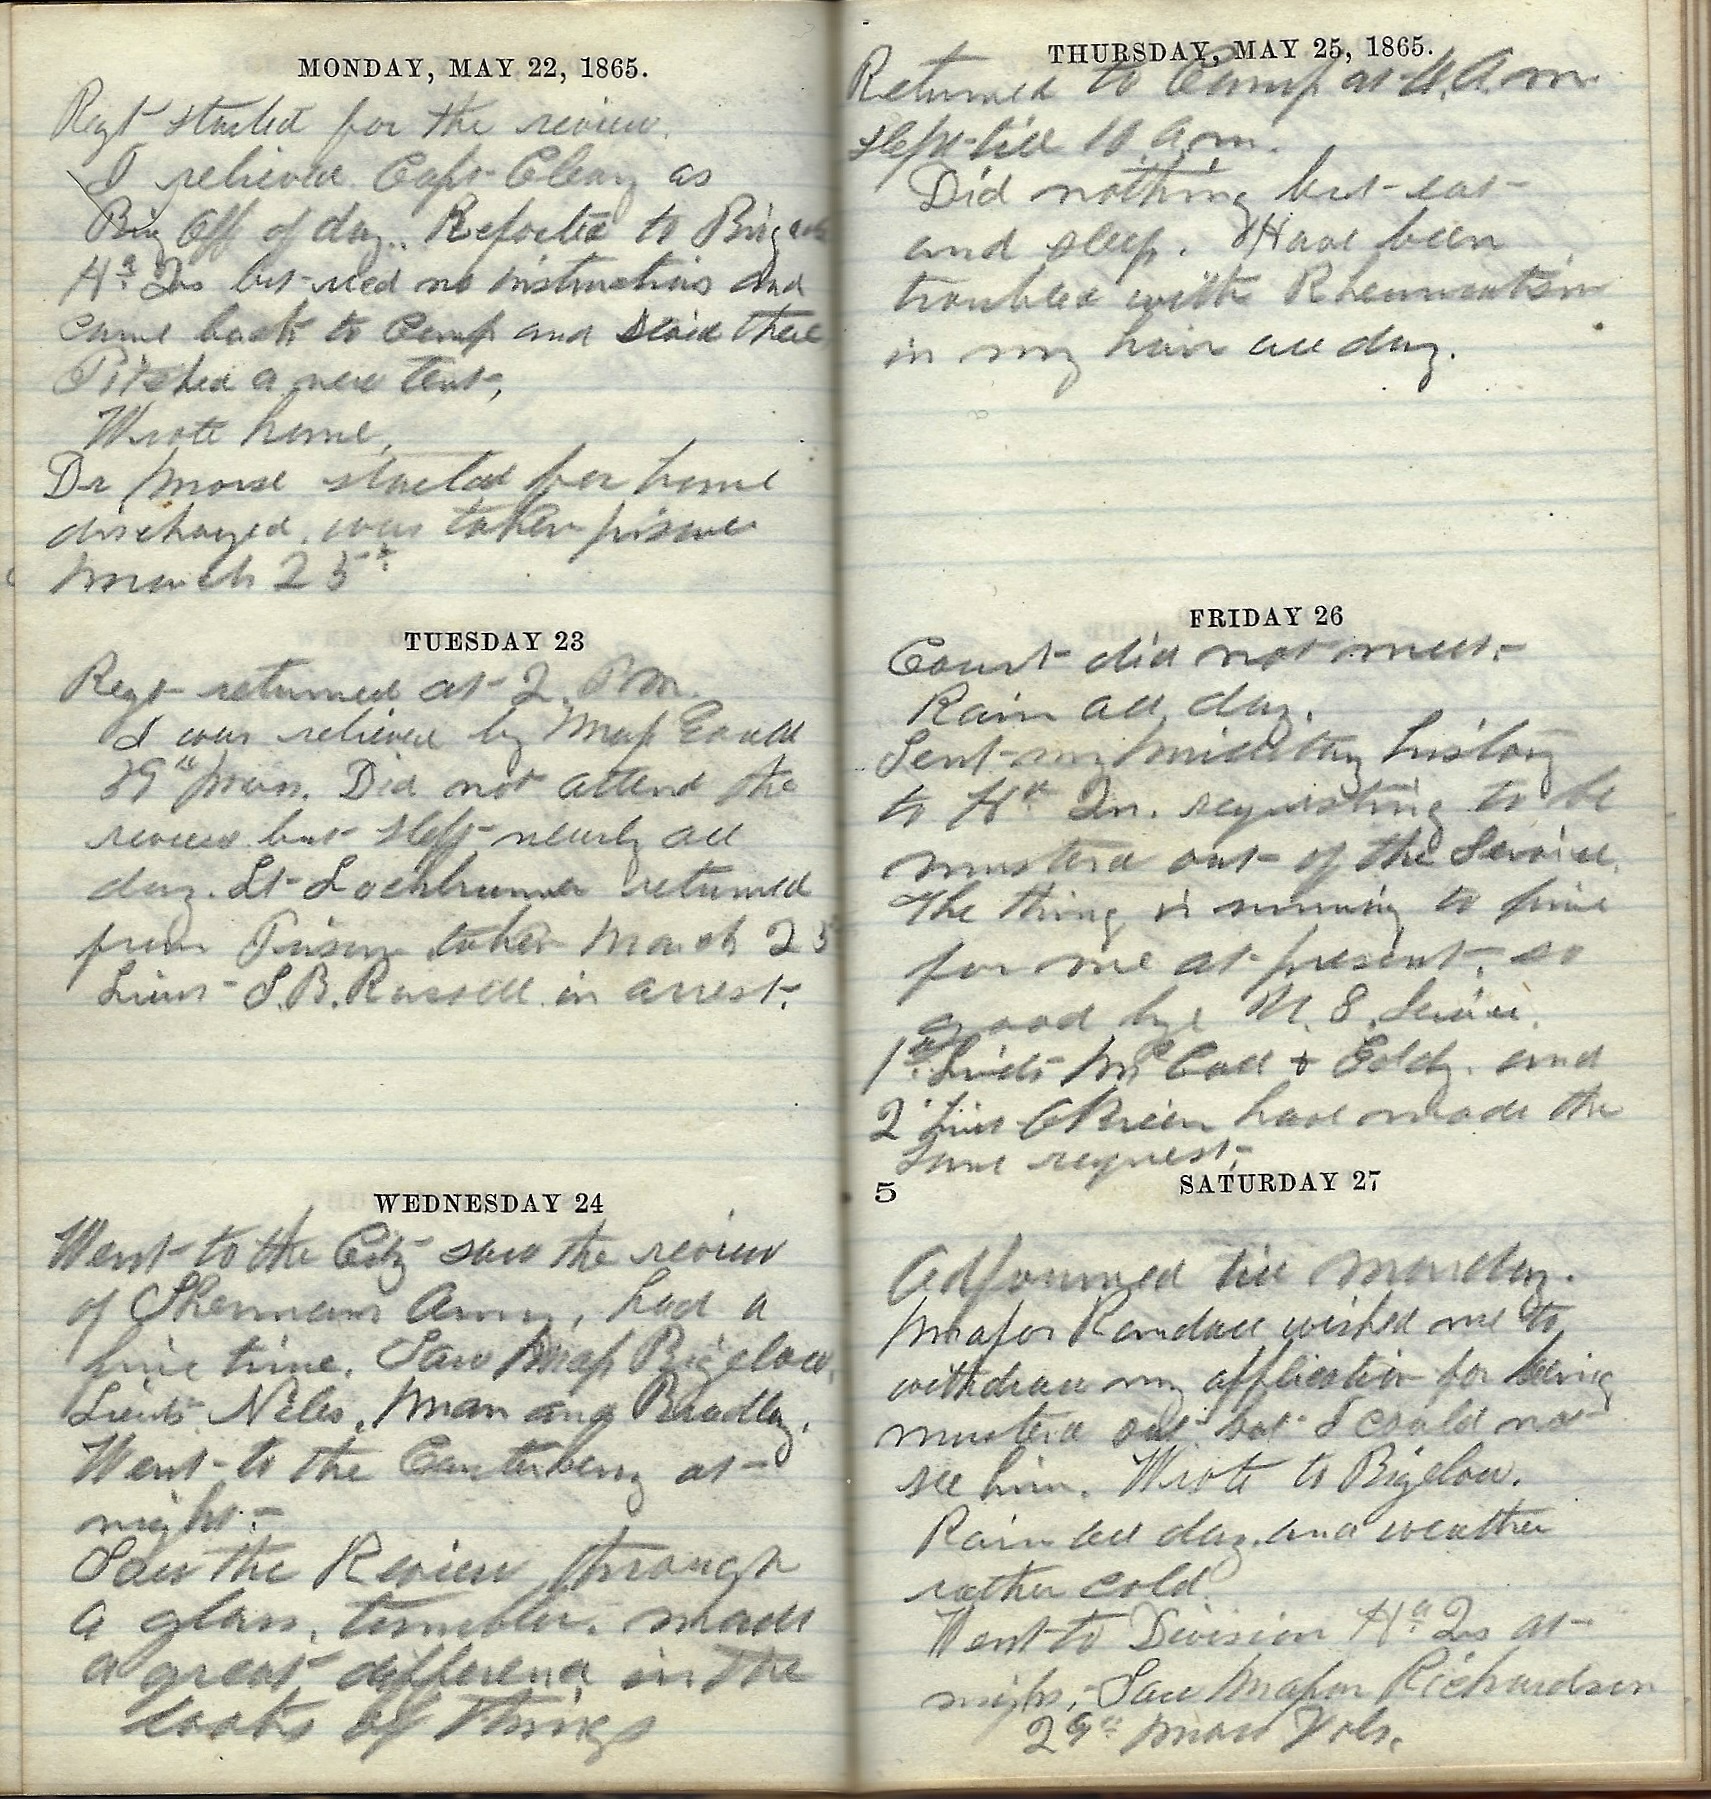 MONDAY, MAY 22, 1865.
Regt started for the review.
I relieved Capt Cleary as
Brig Off of day. Reported to Brigade
Hd Qrs but recd no instructions and
came back to Camp and staid there
Pitched a new tent,
Wrote home,
Dr Morse started for home
discharged, was taken prisoner
March 25th
TUESDAY 23
Regt returned at 2 P.M.
I was relieved by Maj Gould
29th Mass. Did not attend the
review but slept nearly all
day. Lt Lochbrunner returned
from Prison taken March 25
Lieut S. B. Russell in arrest.
WEDNESDAY 24
Went to the City saw the review
of Shermans Army, had a
fine time. Saw Maj Bigelow,
Lieuts Niles, Man and Bradley.
Went to the Canterbury at
night.
Saw the Review through
a glass, tumbler. made
a great difference in the
looks of things
THURSDAY, MAY 25, 1865.
Returned to Camp at A.M.
slept till 10 a.m.
Did nothing but eat
and sleep. Have been
troubled with Rheumatism
in my hair all day.
FRIDAY 26
Court did not meet.
Rain all day.
Sent my military history
to Hd Qrs. requesting to be
musterd out of the Service.
The thing is running to fine
for me at present, so
good bye U. S. Service.
1st Lieuts McCall & Eddy. and
2 Lieut OBrien have made the
same request.
5
SATURDAY 27
Adjourned till Monday.
Major Randall wished me to
withdraw my application for being
musterd out but I could not
see him. Wrote to Bigelow.
Rain all day. and weather
rather cold
Went to Division Hd Qrs at
night, Saw Major Richardson
29th Mass Vols.